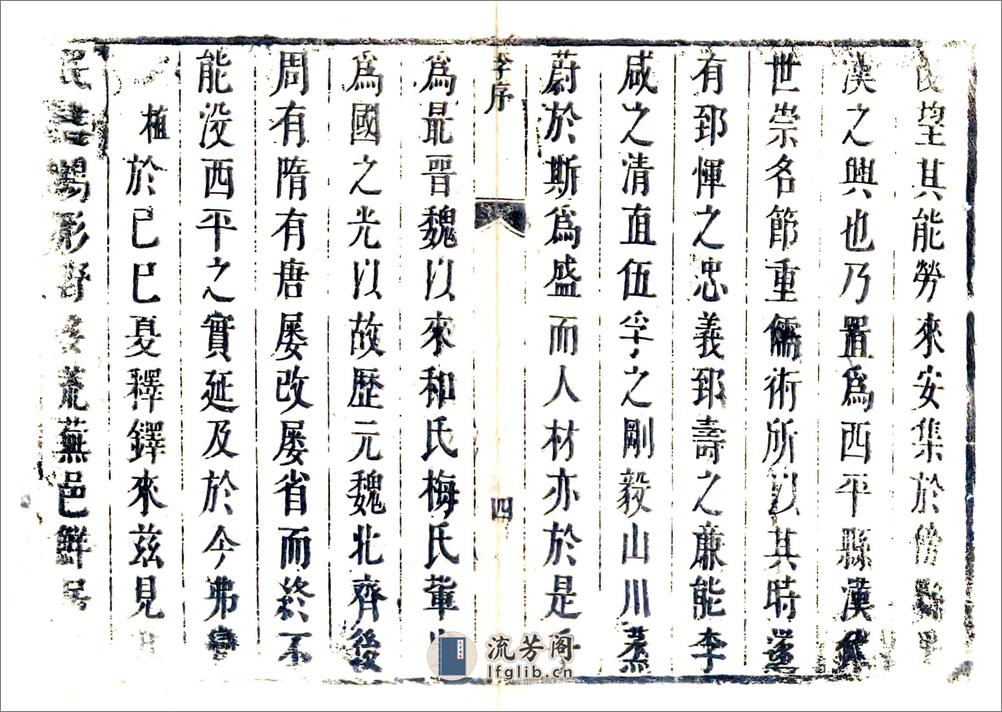 民望其能勞來安集於傍縣
漢之興也乃置爲西平縣漢
世崇名節重儒術所以其時遂
有郅惲之忠義郅壽之廉能李
咸之清直伍孚之剛毅山川蒸
蔚於斯爲盛而人材亦於是乎
李序 四
爲最晉魏以來和氏梅氏輩
爲國之光以故歷元魏北齊後
周有隋有唐屡改屡省而終不
能没西平之實延及於今弗
植於己巳夏釋鐸來兹見
民 鵠形野多荒蕪邑鮮居
流芳阁
lfglib.cn